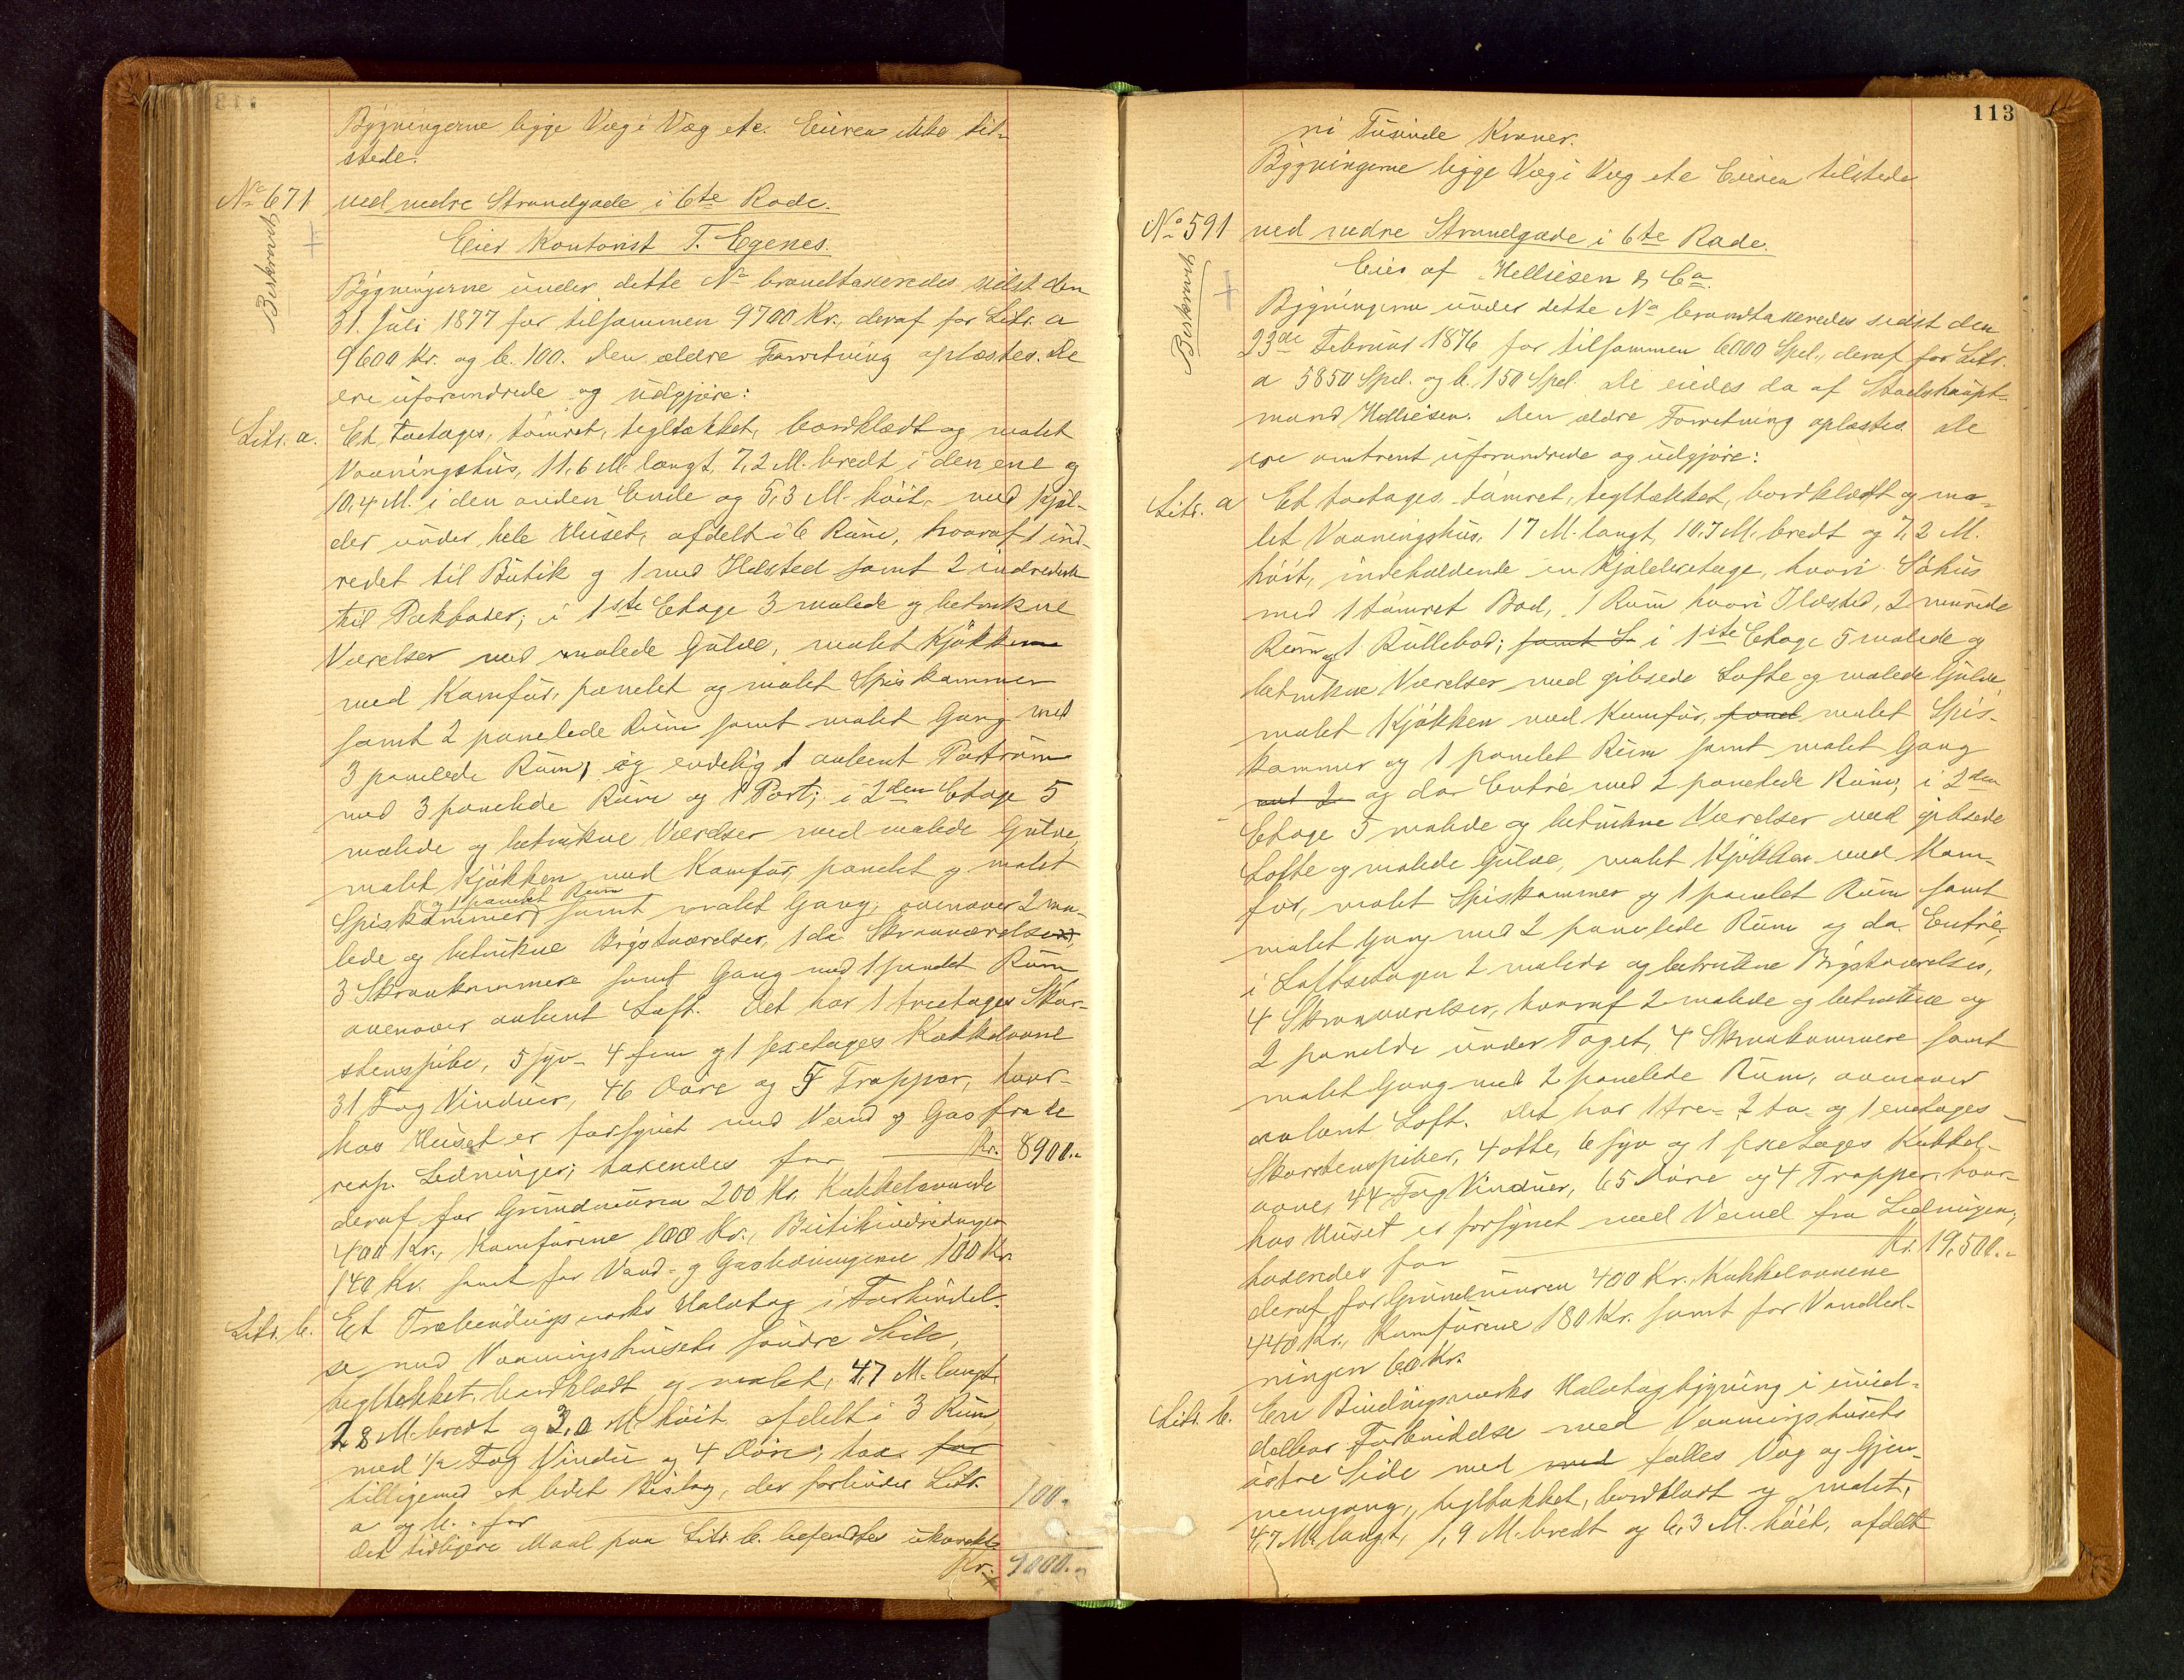 Bygningerne ligge Væg i Væg etc. Eieren ikke til-
stede.
No 671 ved nedre Strandgade i 6te Rode.
Eier Kontorist T. Egenes.
Bygningerne under dette No brandtaxeredes sidst den
31. Juli 1877 for tilsammen 9700 Kr., deraf for Litr. a
9600 Kr. og b. 100. Den ældre Forretning oplæstes. De
ere uforandrede og udgjøre:
Litr. a. Et toetages, tømret, tegltækket, bordklædt og malet
Vaaningshus, 11,6 M. langt, 7,2 M. bredt i den ene og
10,4 M. i den anden Ende og 5,3 M. høit, med Kjæl-
der under hele Huset, afdelt i 6 Rum, hvoraf 1 ind-
redet til Butik og 1 med Ildsted samt 2 indredede
til Pakboder; i 1ste Etage 3 malede og betrukne
Værelser med malede Gulve, malet Kjøkken
med Komfur, panelet og malet Spiskammer
samt 2 panelede Rum samt malet Gang med
3 panelede Rum, og endelig 1 aabent Portrum
med 3 panelede Rum og 1 Port; i 2den Etage 5
malede og betrukne Værelser med malede Gulve,
malet Kjøkken med Komfur, panelet og malet
og 1 panelet Rum
Spiskammer samt malet Gang; ovenover 2 ma-
lede og betrukne Brystværelser, 1 do Skraaværelse,
3 Skraakammere samt Gang med 1 panelet Rum
ovenover aabent Loft. Det har 1 treetages Skor-
stenspibe, 5 syv- 4 fem og 1 sexetages Kakkelovne
31 Fag Vinduer, 46 Døre og 5 Trapper, hvor-
hos Huset er forsynet med Vand og Gas fra de
resp. Ledninger; taxeredes for Kr. 8900.-
deraf for Grundmuren 200 Kr, Kakkelovnene
400 Kr., Komfurene 100 Kr., Butikindredningen
140 Kr. samt for Vand- og Gasledningerne 100 Kr.
Litr. b. Et Træbindingsværks Halvtag i Forbindel-
se med Vaaningshusets søndre Side,
tegltækket, bordklædt og malet, 4,7 M. langt
2,8 M. bredt og 3,0 M. høit afdelt i 3 Rum
med 1/2 Fag Vindu og 4 Døre; tax. for
tilligemed et lidet Bislag, der forbinder Litr.
a og b. for 100.-
Det tidligere Maal paa Litr. b. befandtes ukorrekt.
Kr. 9000.-
Panterne
113
ni Tusinde Kroner.
Bygningerne ligge Væg i Væg etc Eieren tilstede
No 591 ved nedre Strandgade i 6te Rode.
Eies af Helliesen & Co.
Bygningerne under dette No brandtaxeredes sidst den
23de Februar 1876 for tilsammen 6000 Spd., deraf for Litr.
a 5850 Spd. og b. 150 Spd. De eiedes da af Stadshaupt-
mand Helliesen. Den ældre Forretning oplæstes. De
ere omtrent uforandrede og udgjøre:
Litr. a Et toetages tømret, tegltækket, bordklædt og ma-
let Vaaningshus, 17 M. langt, 10,7 M. bredt og 7,2 M.
høit, indeholdende en Kjælderetage, hvori Søhus
med 1 tømret Bod, 1 Rum hvori Ildsted, 2 murede
Rum og 1 Rullebod; samt S i 1ste Etage 5 malede og
betrukne Værelser med gibsede Lofte og malede Gulve
malet Kjøkken med Komfur, panel malet Spis-
kammer og 1 panelet Rum samt malet Gang
med 2 og dor Entré med 2 panelede Rum; i 2den
Etage 5 malede og betrukne Værelser med gibsede
Lofte og malede Gulve, malet Kjøkken med Kom-
fur, malet Spiskammer og 1 panelet Rum samt
malet Gang med 2 panelede Rum og do. Entré,
i Loftsetagen 2 malede og betrukne Brystværelser,
4 Skraaværelser, hvoraf 2 malede og betrukne og
2 panelede under Taget, 4 Skraakammere samt
malet Gang med 2 panelede Rum, ovenover
aabent Loft. Det har 1 tre- 2 to- og 1 enetages
Skorstenspiber, 4 otte, 6 syv og 1 sexetages Kakkel-
ovne, 44 Fag Vinduer, 65 Døre og 4 Trapper, hvor-
hos Huset er forsynet med Vand fra Ledningen;
taxeredes for Kr. 19,500.-
deraf for Grundmuren 400 Kr., Kakkelovnene
440 Kr., Komfurene 180 Kr. samt for Vandled-
ningen 60 Kr.
Litr. b. En Bindingsværks Halvtagbygning i umid-
delbar Forbindelse med Vaaningshusets
østre Side med med fælles Væg og Gjen-
nemgang, tegltækket, bordklædt og malet,
4,7 M. langt, 1,9 M. bredt og 6,3 M. høit, afdelt